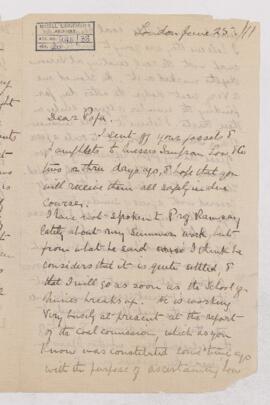 London June 25th
Dear Papa,
I sent off your fossils &
pamphlets to Messrs Simpson Low & Co
two or three days ago, & hope that you
will receive them all safely in due
course.
I have not spoken to Prof. Ramsay
lately about my summer work but
from what he said I think he
considers that it is quite settled &
that I will go as soon as the School of
Mines breaks up. He is working
very busily at present at the report
of the coal commission, which as you
know was constituted some time ago
with the purpose of ascertaining how